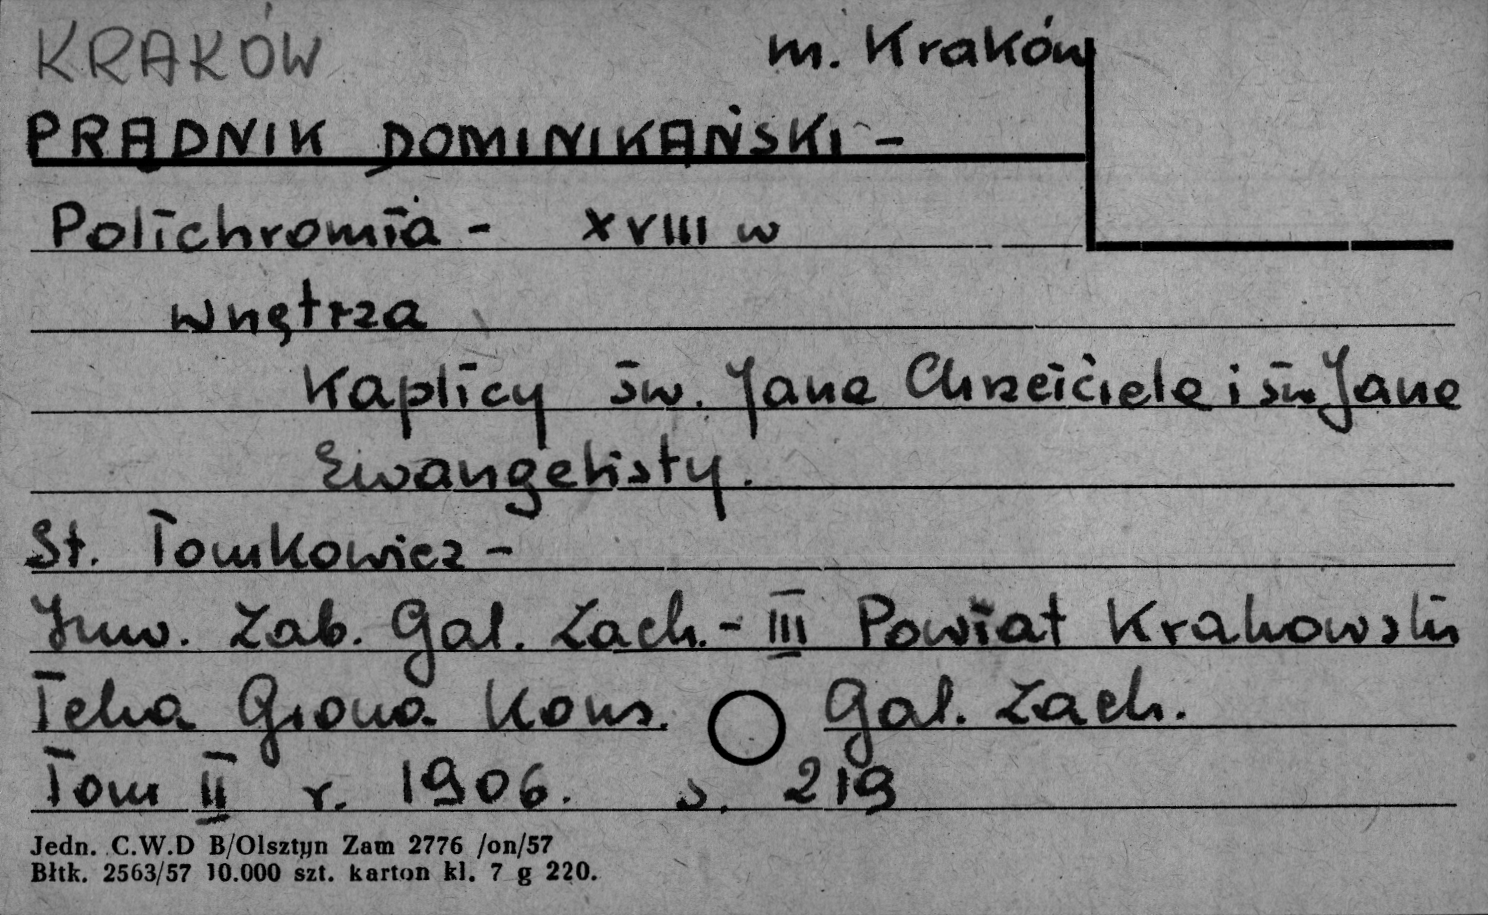 KRAKÓW m. Kraków
PRĄDNIK DOMINIKAŃSKI -
Polichromia - XVIII w
wnętrza
Kaplicy św. Jana Chrzciciela i św Jana
Ewangelisty.
St. Tomkowicz -
Inw. Zab. Gal. Zach. - III Powiat Krakowski
Teka Grona Kons. Gal. Zach.
Tom II r. 1906. s. 219
Jedn. C.W.D B/Olsztyn Zam 2776 /on/57
Błtk. 2563/57 10.000 szt. karton kl. 7 g 220.